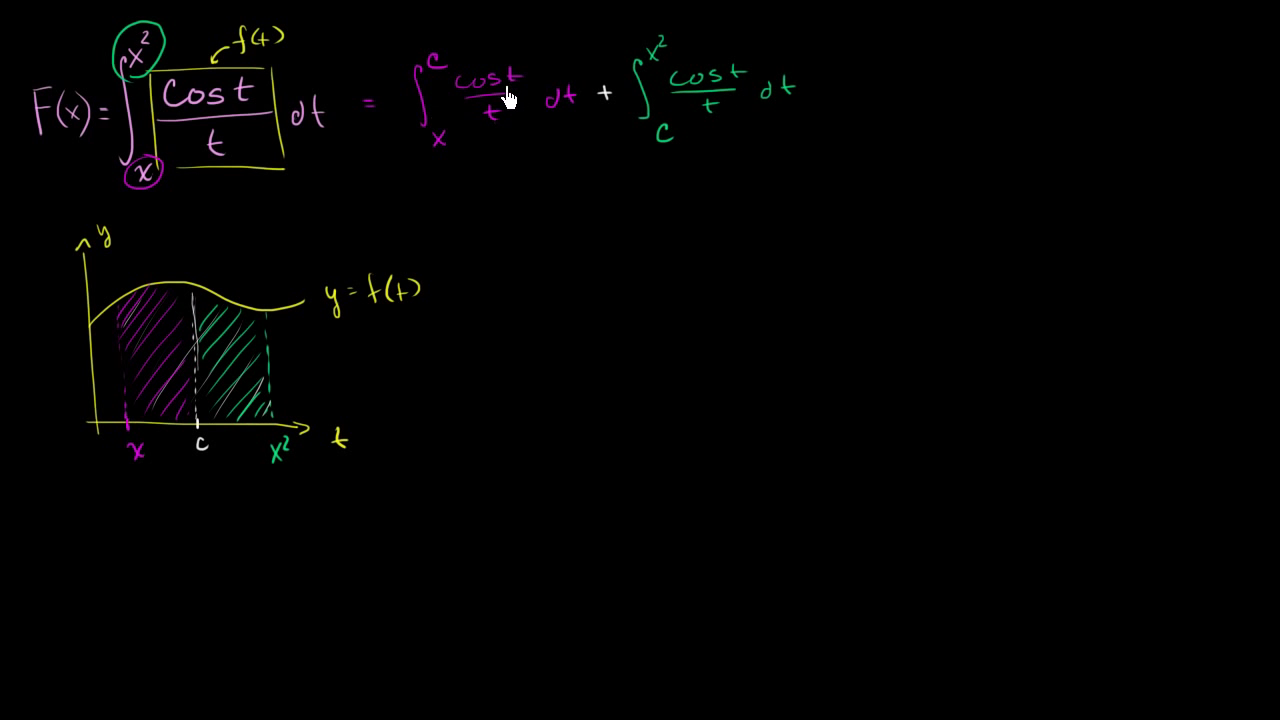 f(t)
F(x) = ∫_x^{x²} cos t / t dt = ∫_x^c cos t / t dt + ∫_c^{x²} cos t / t dt
y
y = f(t)
t
x c x²